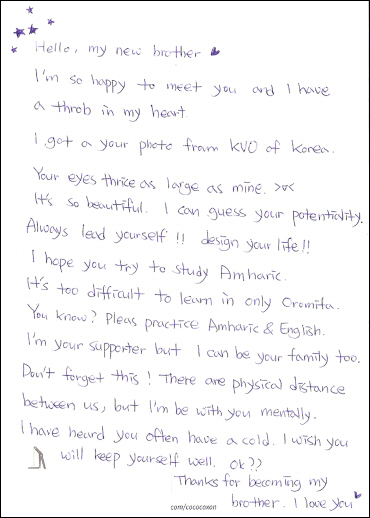 Hello, my new brother ♥
I'm so happy to meet you and I have
a throb in my heart.
I got a your photo from KVO of Korea.
Your eyes thrice as large as mine. >v<
It's so beautiful. I can guess your potentiality.
Always lead yourself!! design your life!!
I hope you try to study Amharic.
It's too difficult to learn in only Oromifa.
You know? Pleas practice Amharic & English.
I'm your supporter but I can be your family too.
Don't forget this! There are physical distance
between us, but I'm be with you mentally.
I have heard you often have a cold. I wish you
will keep yourself well. Ok??
Thanks for becoming my
brother. I love you ♥
com/cococoxon